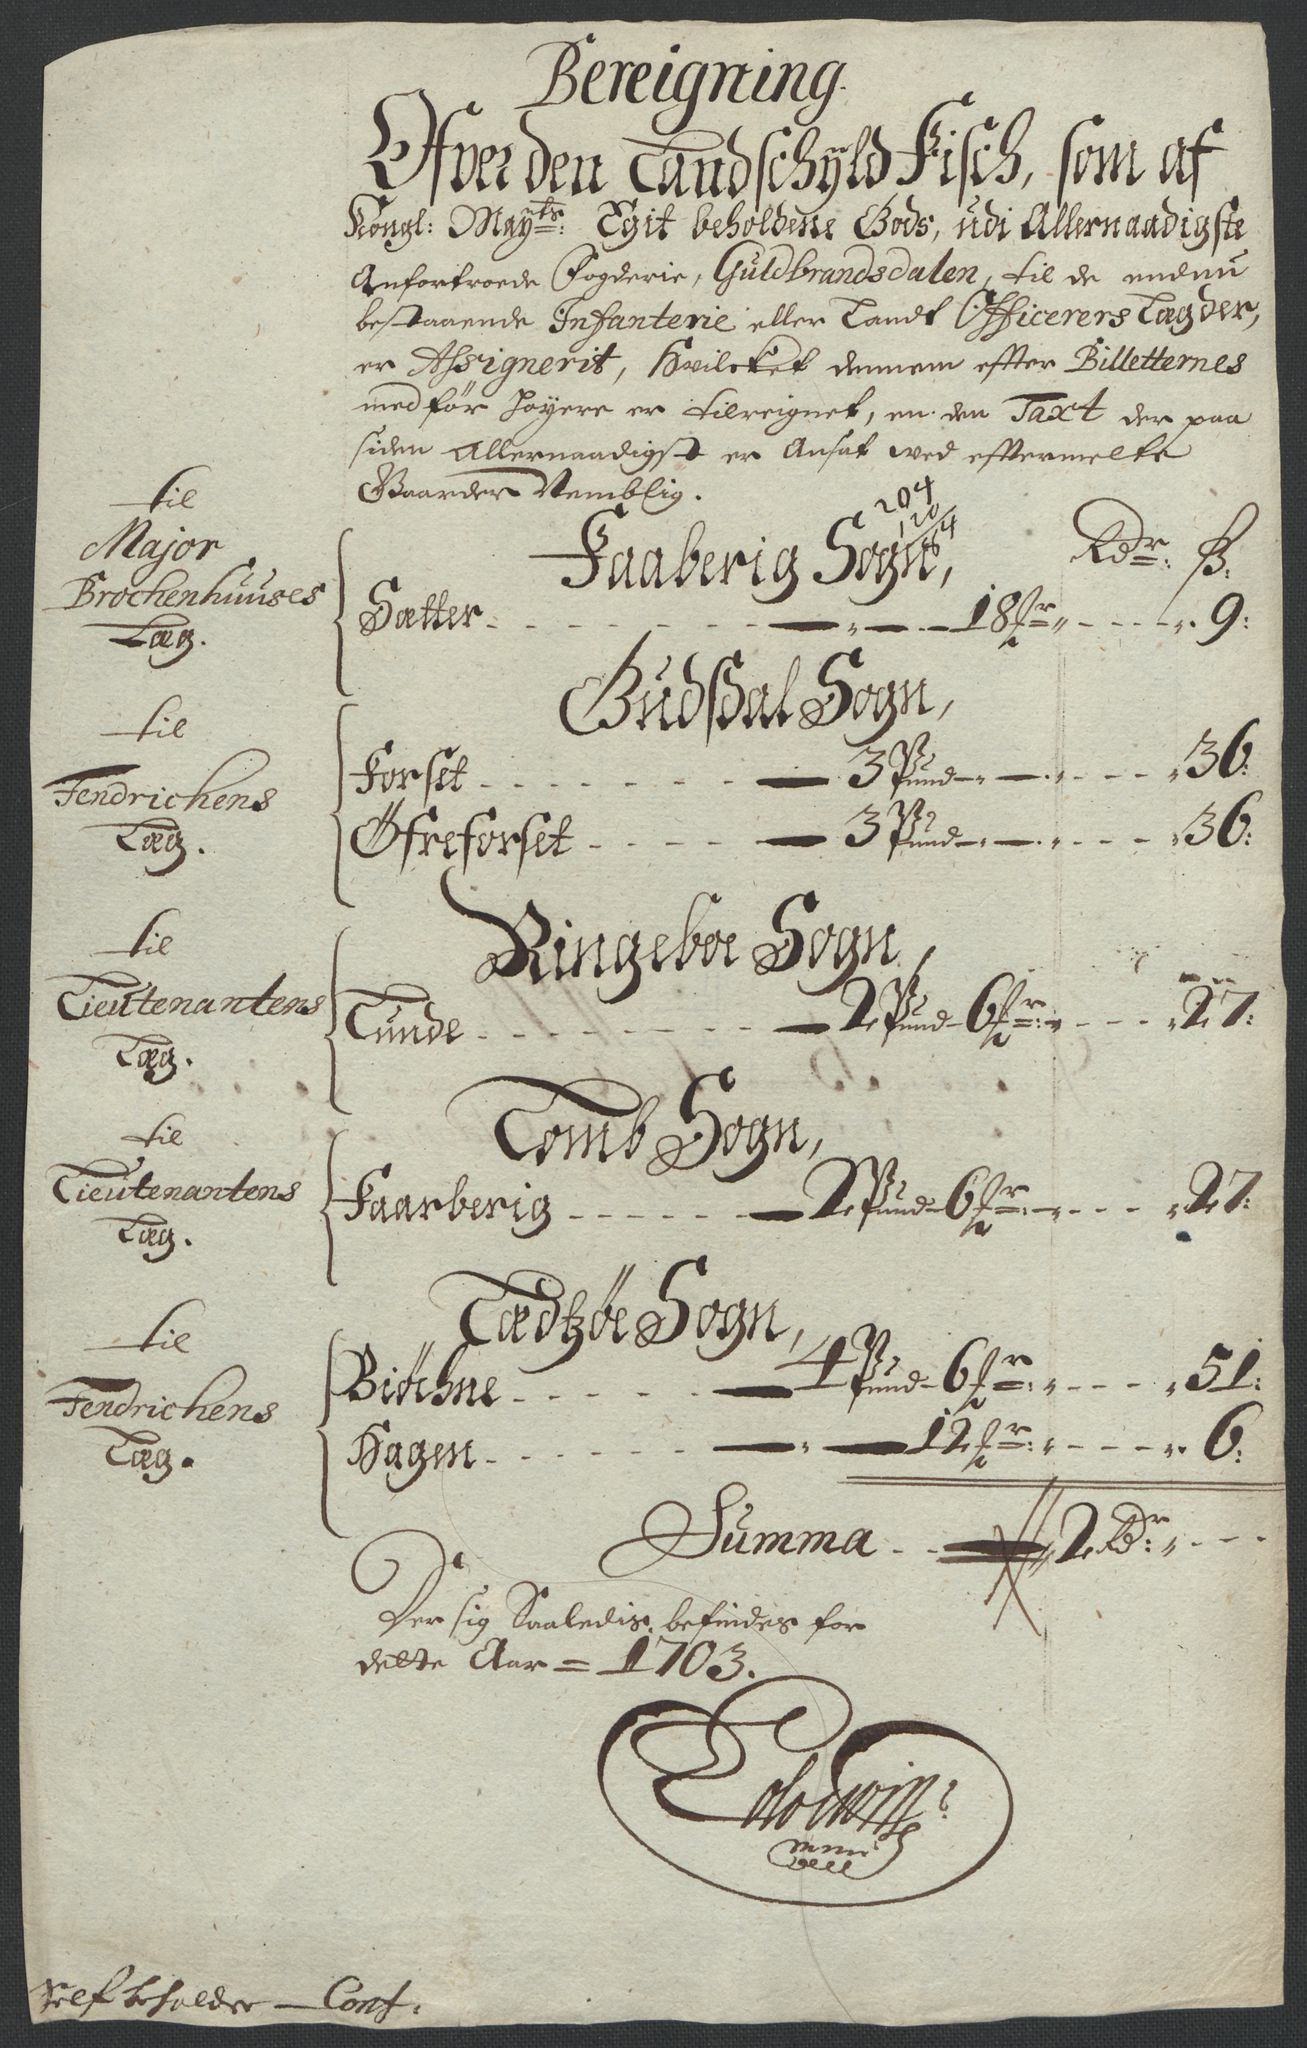 Bereigning.
Ofver den Landschyld Fisch, som af
Kongl: Mayts: Egit beholdene Gods, udi Allernaadigste
Anfortroede Fogderie, Guldbrandsdalen, til de endnu
bestaaende Infanterie eller Landt Officerers Læg der,
er Assignerit, Hvilcket dennem effter Billetternes
medfør høyere er tilreignet, en den Taxt der paa
siden Allernaadigst er Ansat wed effttermelte
Gaarder Nemblig.
204
120
84
til
Major
Brochenhuuses
Læg.
Faaberig Sogn, Rdr: ß:
Sætter 18 fr 9:
Gudßdal Sogn,
til
Fendrichens
Læg.
Forset 3 Pund 36:
Öfreforset 3 Pund 36:
Ringeboe Sogn,
til
Lieutenantens
Læg.
Lunde 2 Pund 6 fr: 27:
Lomb Sogn,
til
Lieutenantens
Læg.
Faarberig 2 Pund 6 fr: 27:
Lædtzöe Sogn,
til
Fendrichens
Læg.
Biöchne 4 Pund 6 fr: 51:
Hagen 12 fr: 6:
Summa 2 Rdr:
Der sig Saaledis befindes for
dette Aar = 1703.